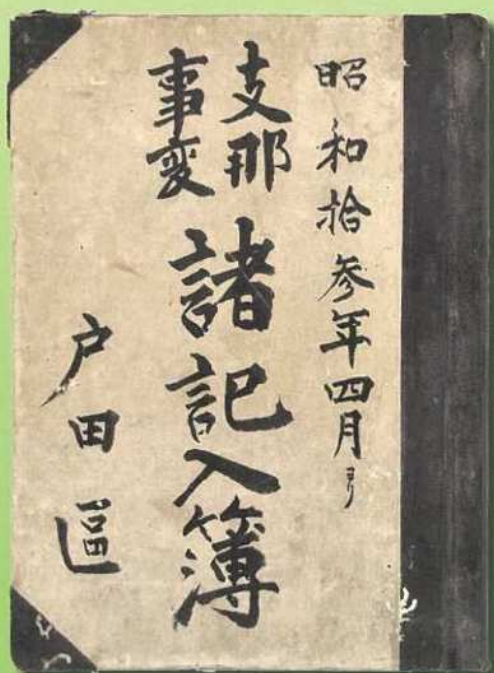 昭和拾参年四月ヨリ
支那
事変
諸記入簿
戸田區